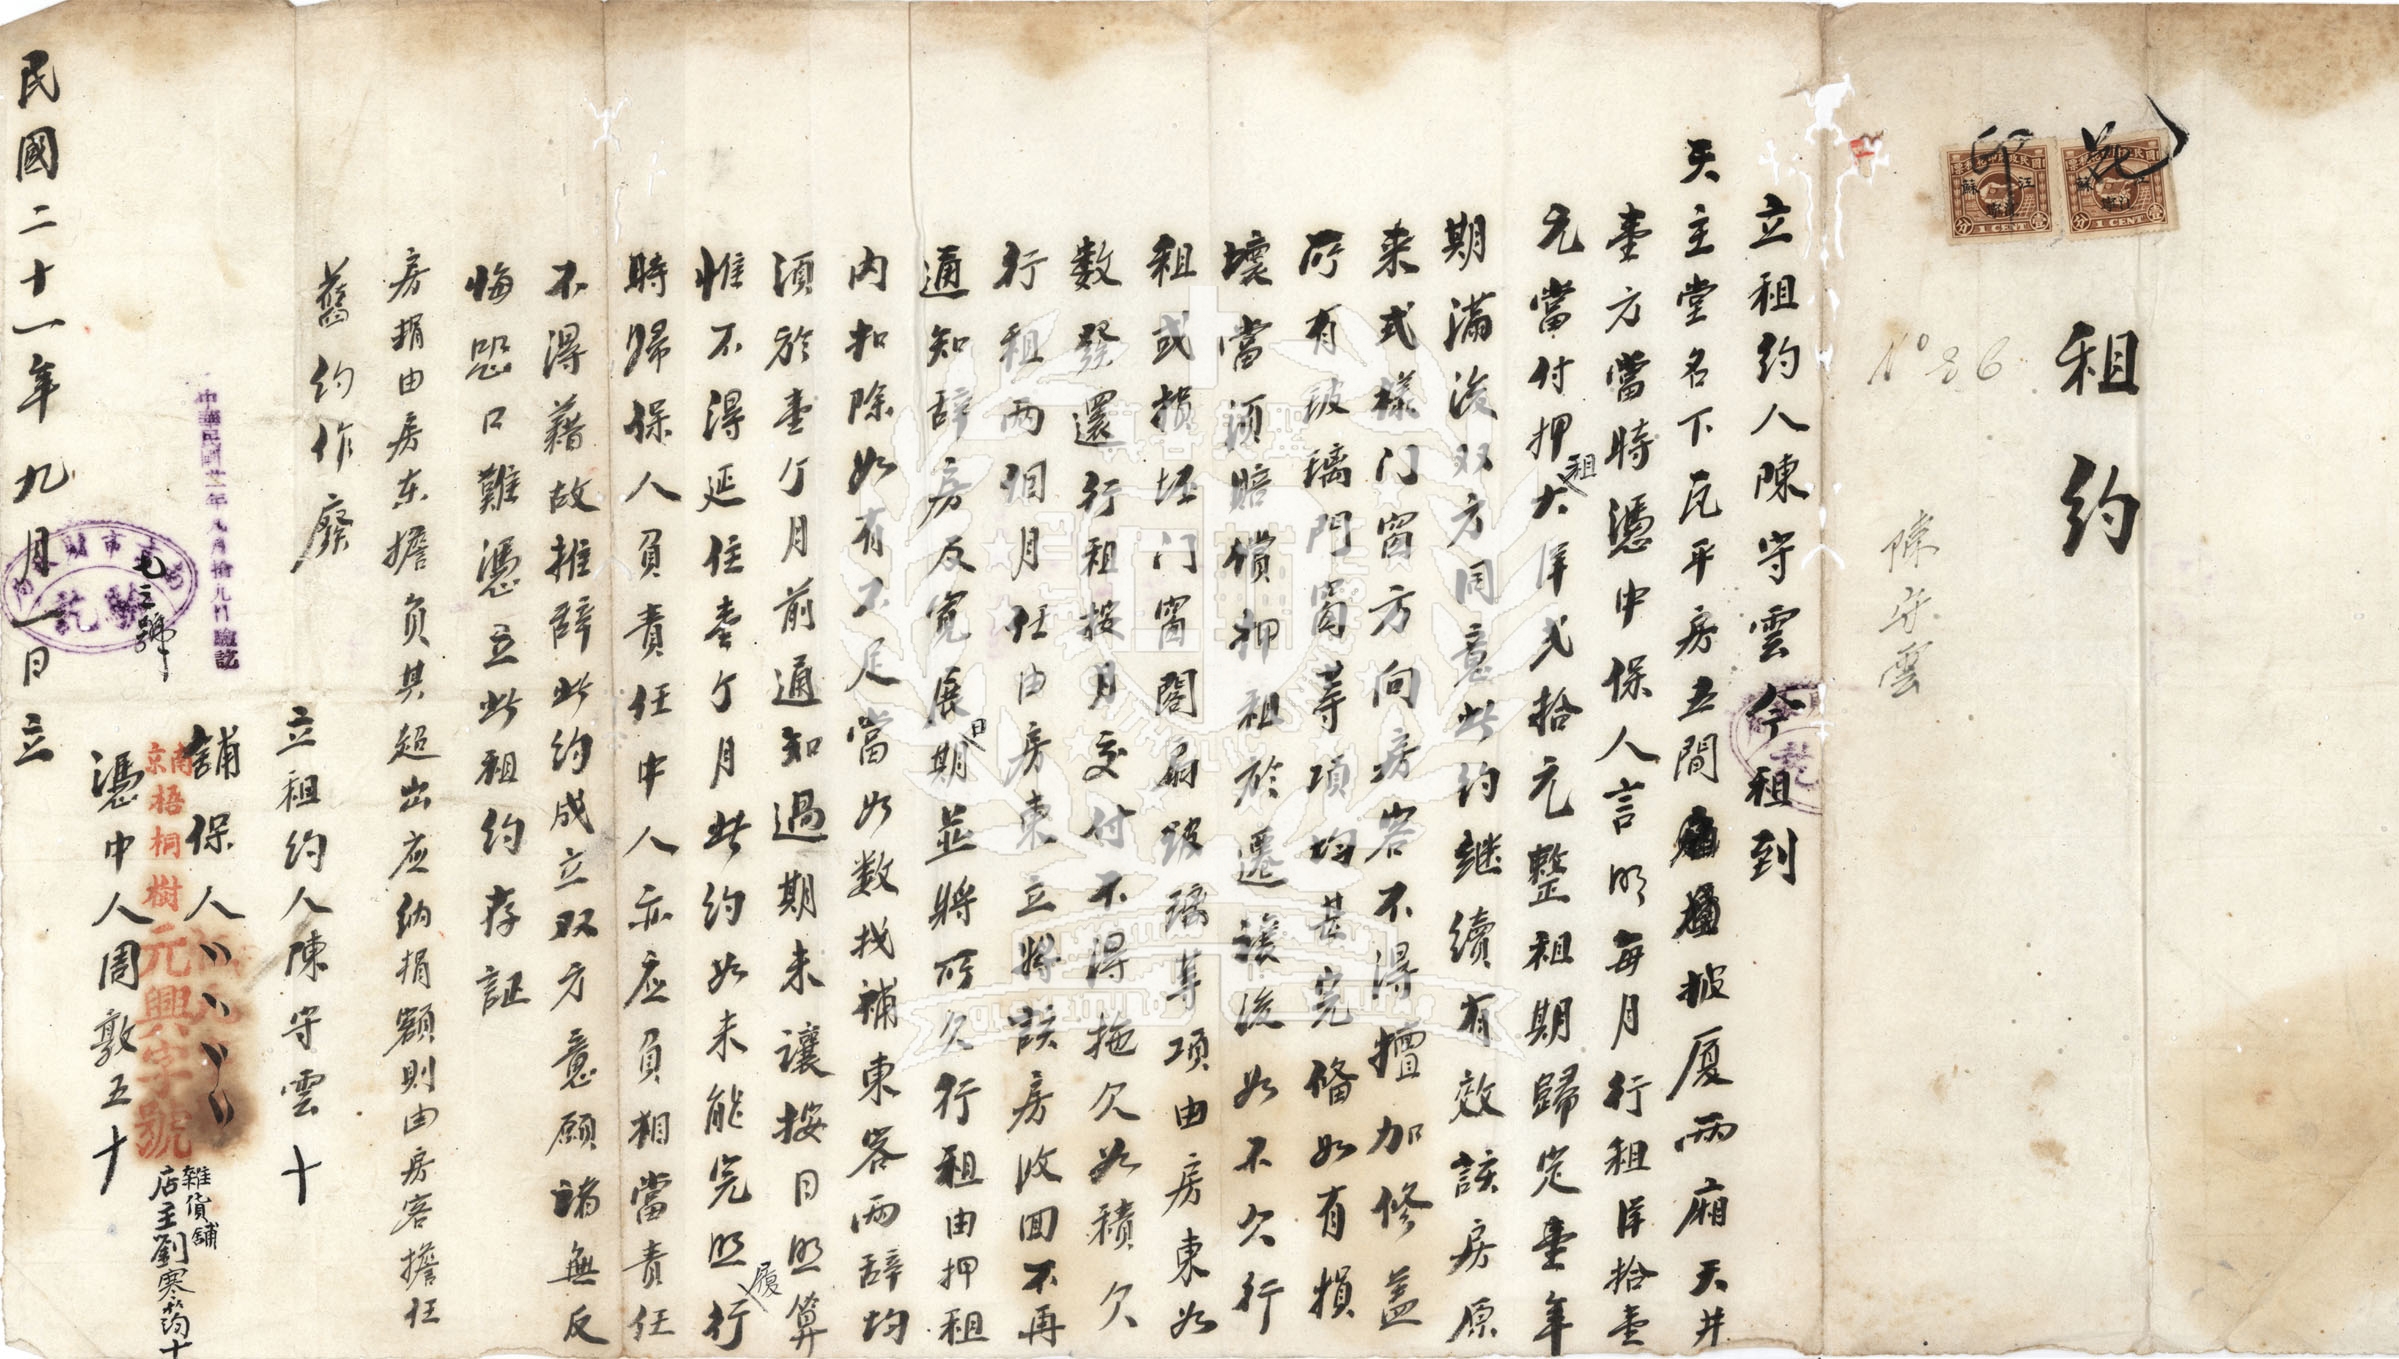 印花
租約
No 26
陳守雲
立租約人陳守雲今租到
天主堂名下瓦平房五間披厦両廂天井
壹方當時憑中保人言明每月行租洋拾壹
元當付押租大洋弍拾元整租期歸定壹年
期滿後双方同意此約継續有效該房原
來式樣门窗方向房客不得擅加修蓋
所有玻璃門窗等項均甚完俻如有損
壞當須賠償押租於遷讓後如不欠行
租或損坯门窗閣扇玻璃等項由房東如
數發還行租按月交付不得拖欠如積欠
行租両個月任由房東立將該房收回不再
通知辞房及寬展日期並將所欠行租由押租
內扣除如有不足當如数找補東客両辞均
須於壹個月前通知過期未讓按日照算
惟不得延住壹個月此約如未能完照履行
時歸保人負責任中人亦应負相當責任
不得藉故推辞此約成立双方意願諸無反
悔恐口難憑立此租約存証
房捐由房东擔负其超出应納捐額則由房客擔任
舊約作廢
立租約人陳守雲十
中華民國廿一年九月拾九日驗訖
舖保人
南京梧桐樹元興字號
雜貨舖
店主劉寒筠十
憑中人周敦五十
民國二十一年九月一日立